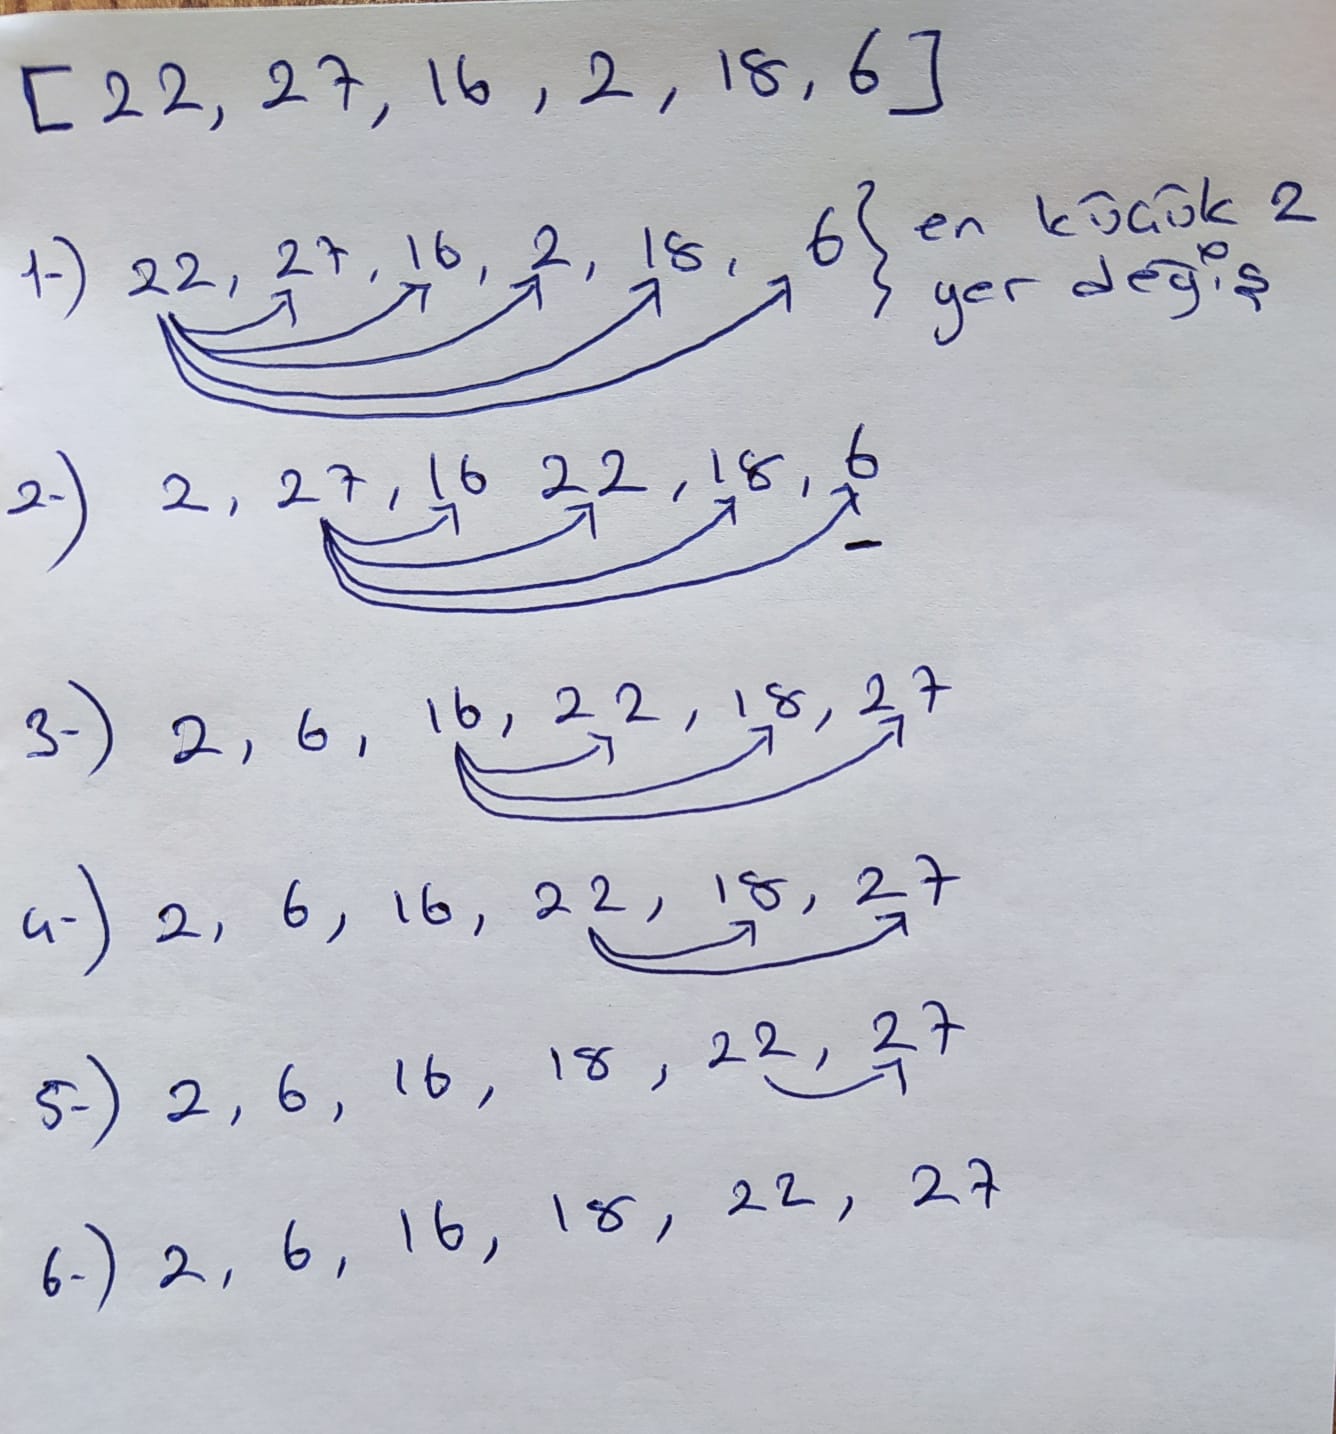 [22, 27, 16, 2, 18, 6]
1-) 22, 27, 16, 2, 18, 6 } en küçük 2
yer değiş
2-) 2, 27, 16 22, 18, 6
3-) 2, 6, 16, 22, 18, 27
4-) 2, 6, 16, 22, 18, 27
5-) 2, 6, 16, 18, 22, 27
6-) 2, 6, 16, 18, 22, 27